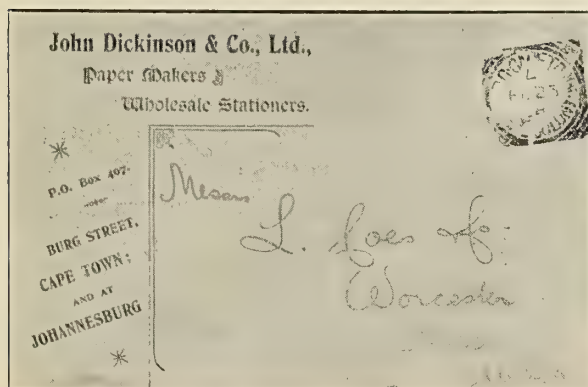 John Dickinson & Co., Ltd.,
Paper Makers &
Wholesale Stationers.
P.O. Box 407.
BURG STREET,
CAPE TOWN;
AND AT
JOHANNESBURG
Messrs
L.
Worcester